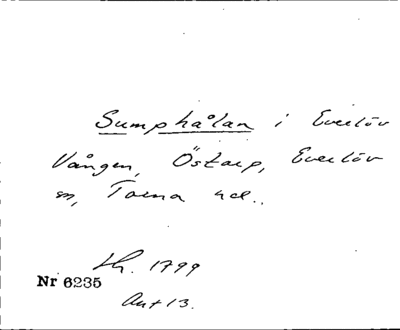 Sumphålan i Everlöv
Vången, Östarp, Everlöv
sn, Torna hd..
Lh. 1799
Nr 6235
Avt 13.